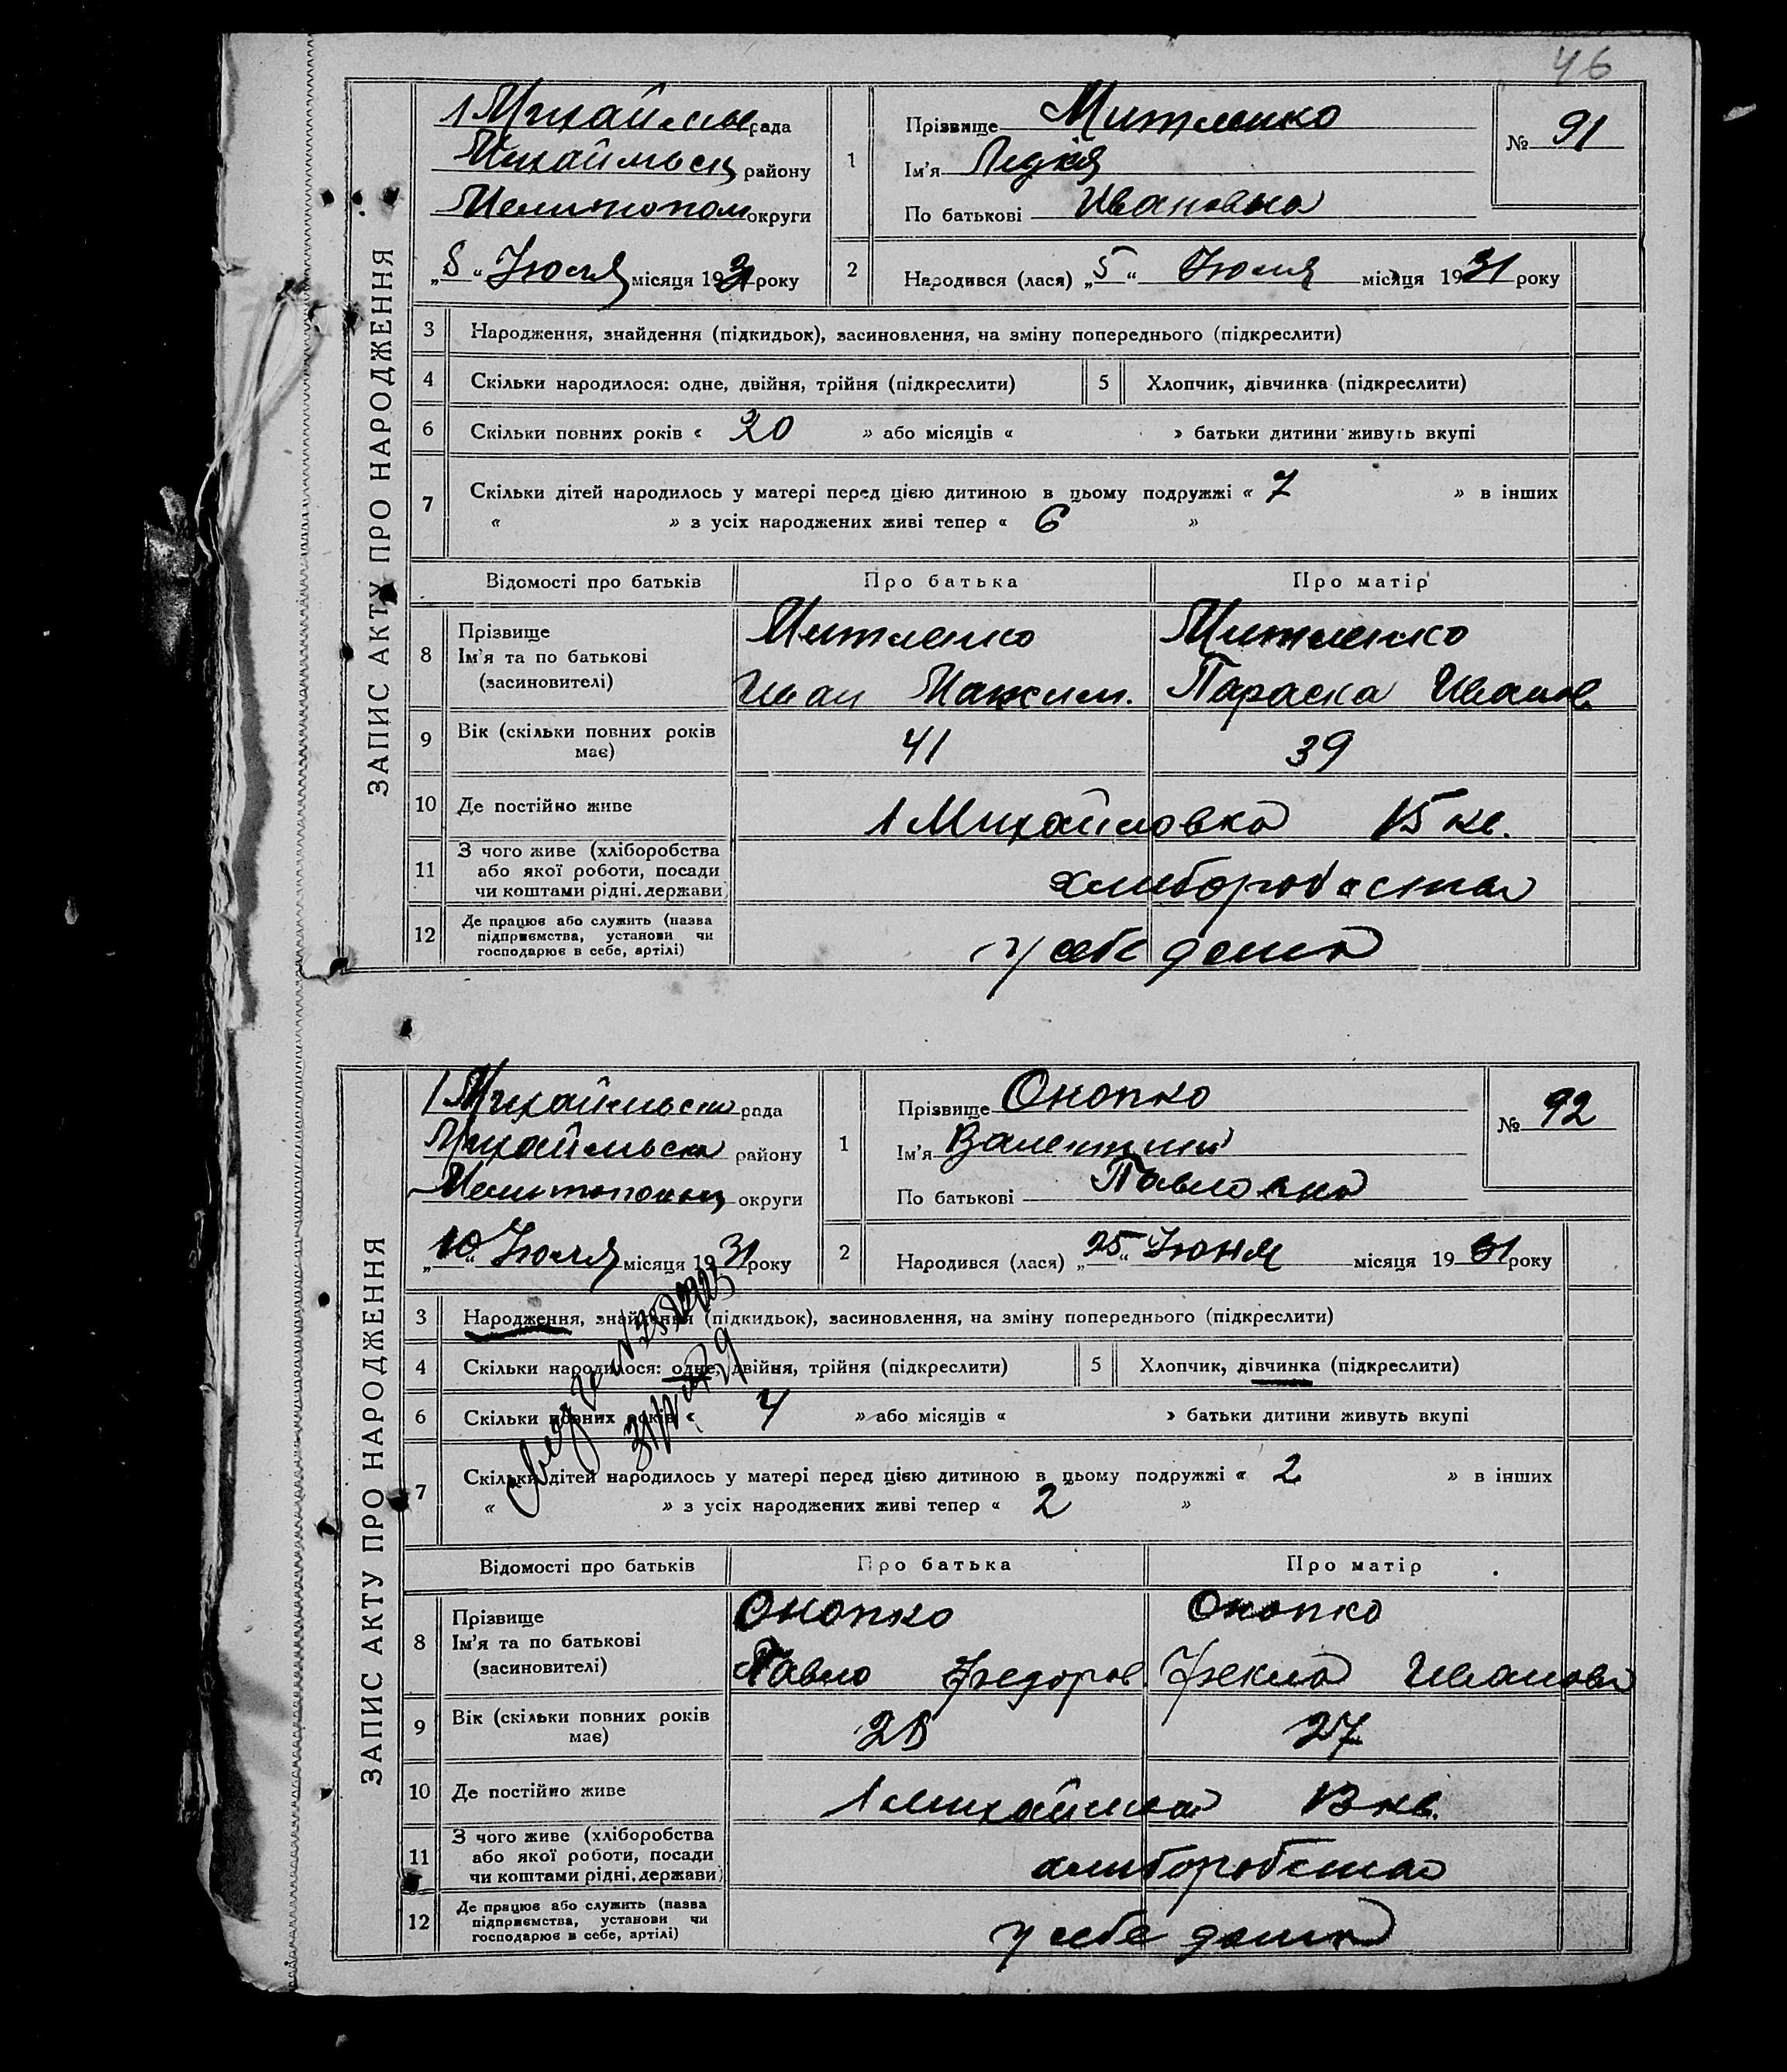 46
ЗАПИС АКТУ ПРО НАРОДЖЕННЯ
1 Михайльс рада
Михайльськ району
Мелитопол округи
„8“ Июля місяця 1931 року
1
Прізвище Митленко
Ім'я Лидия
По батькові Ивановна
№ 91
2
Народився (лася) „5“ Июля місяця 1931 року
3 Народження, знайдення (підкидьок), засиновлення, на зміну попереднього (підкреслити)
4 Скільки народилося: одне, двійня, трійня (підкреслити) 5 Хлопчик, дівчинка (підкреслити)
6 Скільки повних років « 20 » або місяців « » батьки дитини живуть вкупі
7 Скільки дітей народилось у матері перед цією дитиною в цьому подружжі « 7 » в інших
« » з усіх народжених живі тепер « 6 »
Відомості про батьків Про батька Про матір
8 Прізвище
Ім'я та по батькові
(засиновителі)
Митленко
Иван Максим.
Митленко
Параска Иванов.
9 Вік (скільки повних років
має)
41 39
10 Де постійно живе 1 Михайловка 15 кв.
11 З чого живе (хліборобства
або якої роботи, посади
чи коштами рідні, держави)
хлиборобства
12 Де працює або служить (назва
підприємства, установи чи
господарює в себе, артілі)
у себе дома
ЗАПИС АКТУ ПРО НАРОДЖЕННЯ
1 Михайльська рада
Михайльска району
Мелитопольськ округи
„10“ Июля місяця 1931 року
1
Прізвище Онопко
Ім'я Валентина
По батькові Павловна
№ 92
2
Народився (лася) „25“ Июня місяця 1931 року
3 Народження, знайдення (підкидьок), засиновлення, на зміну попереднього (підкреслити)
4 Скільки народилося: одне, двійня, трійня (підкреслити) 5 Хлопчик, дівчинка (підкреслити)
6 Скільки повних років « 4 » або місяців « » батьки дитини живуть вкупі
7 Скільки дітей народилось у матері перед цією дитиною в цьому подружжі « 2 » в інших
« » з усіх народжених живі тепер « 2 »
Відомості про батьків Про батька Про матір
8 Прізвище
Ім'я та по батькові
(засиновителі)
Онопко
Павло Федоров.
Онопко
Фекла Иванова
9 Вік (скільки повних років
має)
28 27
10 Де постійно живе 1 Михайловка 13 кв.
11 З чого живе (хліборобства
або якої роботи, посади
чи коштами рідні, держави)
хлиборобства
12 Де працює або служить (назва
підприємства, установи чи
господарює в себе, артілі)
у себе дома